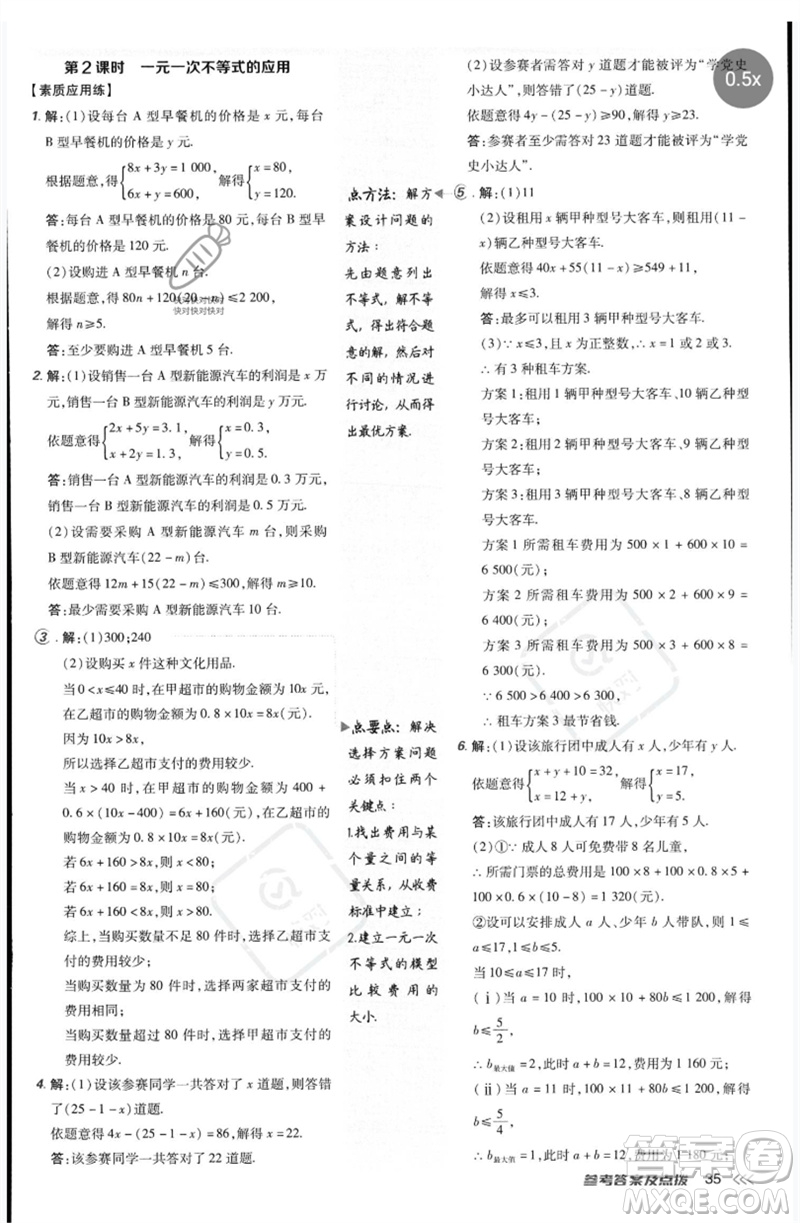 第2课时 一元一次不等式的应用
【素质应用练】
1. 解:(1)设每台 A 型早餐机的价格是 x 元,每台 B 型早餐机的价格是 y 元.
根据题意,得{8x+3y=1 000, 6x+y=600, 解得{x=80, y=120.
答:每台 A 型早餐机的价格是 80 元,每台 B 型早餐机的价格是 120 元.
(2)设购进 A 型早餐机 n 台.
根据题意,得 80n+120(20-n)≤2 200,
解得 n≥5.
答:至少要购进 A 型早餐机 5 台.
2. 解:(1)设销售一台 A 型新能源汽车的利润是 x 万元,销售一台 B 型新能源汽车的利润是 y 万元.
依题意得{2x+5y=3.1, x+2y=1.3, 解得{x=0.3, y=0.5.
答:销售一台 A 型新能源汽车的利润是 0.3 万元,
销售一台 B 型新能源汽车的利润是 0.5 万元.
(2)设需要采购 A 型新能源汽车 m 台,则采购
B 型新能源汽车(22-m)台.
依题意得 12m+15(22-m)≤300,解得 m≥10.
答:最少需要采购 A 型新能源汽车 10 台.
3. 解:(1)300;240
(2)设购买 x 件这种文化用品.
当 0<x≤40 时,在甲超市的购物金额为 10x 元,
在乙超市的购物金额为 0.8×10x=8x(元).
因为 10x>8x,
所以选择乙超市支付的费用较少.
当 x>40 时,在甲超市的购物金额为 400+
0.6×(10x-400)=6x+160(元),在乙超市的
购物金额为 0.8×10x=8x(元).
若 6x+160>8x,则 x<80;
若 6x+160=8x,则 x=80;
若 6x+160<8x,则 x>80.
综上,当购买数量不足 80 件时,选择乙超市支付
的费用较少;
当购买数量为 80 件时,选择两家超市支付的
费用相同;
当购买数量超过 80 件时,选择甲超市支付的
费用较少.
4. 解:(1)设该参赛同学一共答对了 x 道题,则答错
了(25-1-x)道题.
依题意得 4x-(25-1-x)=86,解得 x=22.
答:该参赛同学一共答对了 22 道题.
点方法:解方
案设计问题的
方法:
先由题意列出
不等式,解不等
式,得出符合题
意的解,然后对
不同的情况进
行讨论,从而得
出最优方案.
点要点:解决
选择方案问题
必须扣住两个
关键点:
1.找出费用与某
个量之间的等
量关系,从收费
标准中建立;
2.建立一元一次
不等式的模型
比较费用的
大小.
(2)设参赛者需答对 y 道题才能被评为“学党史
小达人”,则答错了(25-y)道题.
依题意得 4y-(25-y)≥90,解得 y≥23.
答:参赛者至少需答对 23 道题才能被评为“学党
史小达人”.
5. 解:(1)11
(2)设租用 x 辆甲种型号大客车,则租用(11-
x)辆乙种型号大客车.
依题意得 40x+55(11-x)≥549+11,
解得 x≤3.
答:最多可以租用 3 辆甲种型号大客车.
(3)∵x≤3,且 x 为正整数,∴x=1或2或3.
∴有 3 种租车方案.
方案1:租用 1 辆甲种型号大客车、10 辆乙种型
号大客车.
方案2:租用 2 辆甲种型号大客车、9 辆乙种型
号大客车.
方案3:租用 3 辆甲种型号大客车、8 辆乙种型
号大客车.
方案 1 所需租车费用为 500×1+600×10=
6 500(元);
方案 2 所需租车费用为 500×2+600×9=
6 400(元);
方案 3 所需租车费用为 500×3+600×8=
6 300(元).
∵6 500>6 400>6 300,
∴租车方案 3 最节省钱.
6. 解:(1)设该旅行团中成人有 x 人,少年有 y 人.
依题意得{x+y+10=32, x=12+y, 解得{x=17, y=5.
答:该旅行团中成人有 17 人,少年有 5 人.
(2)①∵成人 8 人可免费带 8 名儿童,
∴所需门票的总费用为 100×8+100×0.8×5+
100×0.6×(10-8)=1 320(元).
②设可以安排成人 a 人、少年 b 人带队,则 1≤
a≤17,1≤b≤5.
当 10≤a≤17 时,
(ⅰ)当 a=10 时,100×10+80b≤1 200,
b≤5/2,
∴b最大值=2,此时 a+b=12,费用为 1 160 元;
(ⅱ)当 a=11 时,100×11+80b≤1 200,
b≤5/4,
∴b最大值=1,此时 a+b=12,费用为 1 180 元;
参考答案及点拨 35
0.5x
快对快对快对
快对快对快对
答案圈